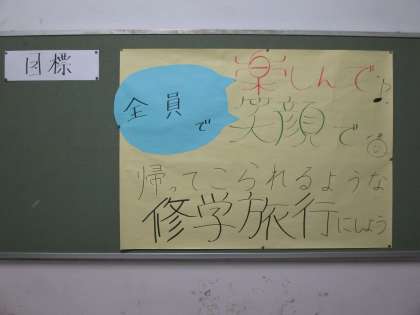 目標
全員で
楽しんで♪
笑顔で
帰ってこられるような
修学旅行にしよう